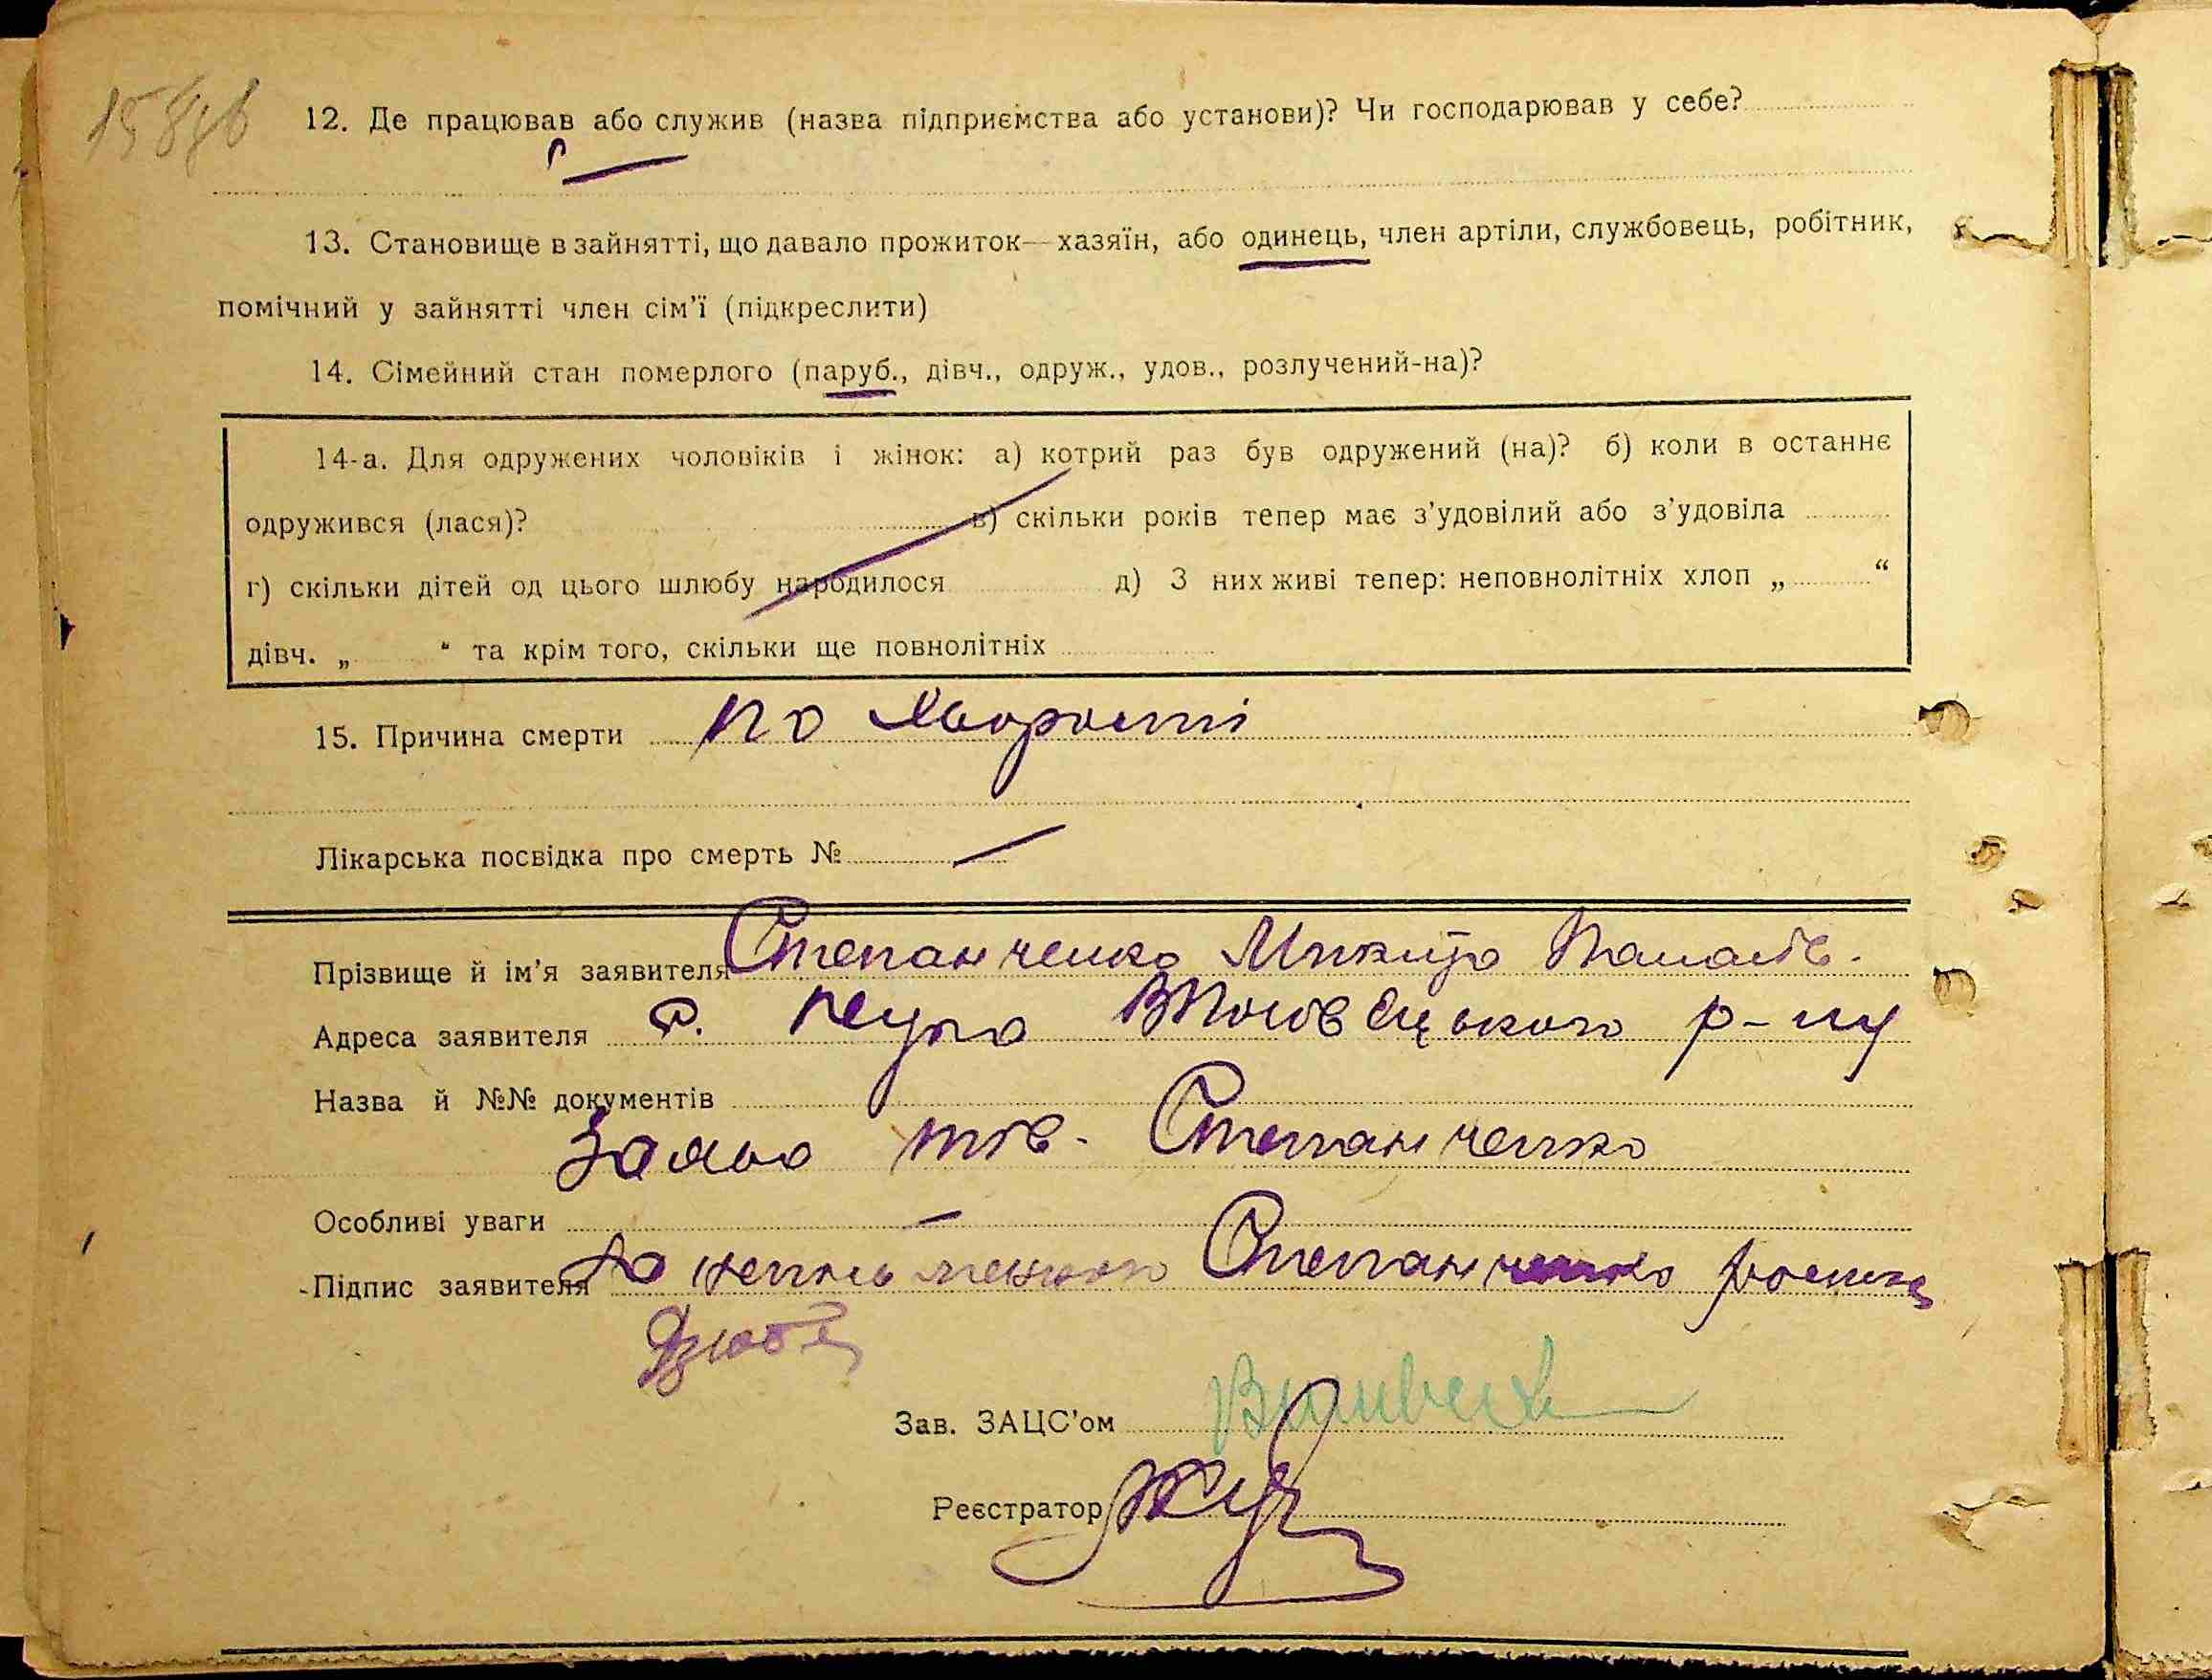 158зв
12. Де працював або служив (назва підприємства або установи)? Чи господарював у себе?
13. Становище в зайнятті, що давало прожиток—хазяїн, або одинець, член артіли, службовець, робітник,
помічний у зайнятті член сім'ї (підкреслити)
14. Сімейний стан померлого (паруб., дівч., одруж., удов., розлучений-на)?
14-а. Для одружених чоловіків і жінок: а) котрий раз був одружений (на)? б) коли в останнє
одружився (лася)? в) скільки років тепер має з'удовілий або з'удовіла
г) скільки дітей од цього шлюбу народилося д) З них живі тепер: неповнолітніх хлоп „ “
дівч. „ “ та крім того, скільки ще повнолітніх
15. Причина смерти по хворості
Лікарська посвідка про смерть № —
Прізвище й ім'я заявителя Степанченко Микита Панасів.
Адреса заявителя с.
р-ну
Назва й №№ документів
Заява тов. Степанченко
Особливі уваги —
Підпис заявителя За неписьменного Степанченко
Дзюба
Зав. ЗАЦС'ом
Реєстратор